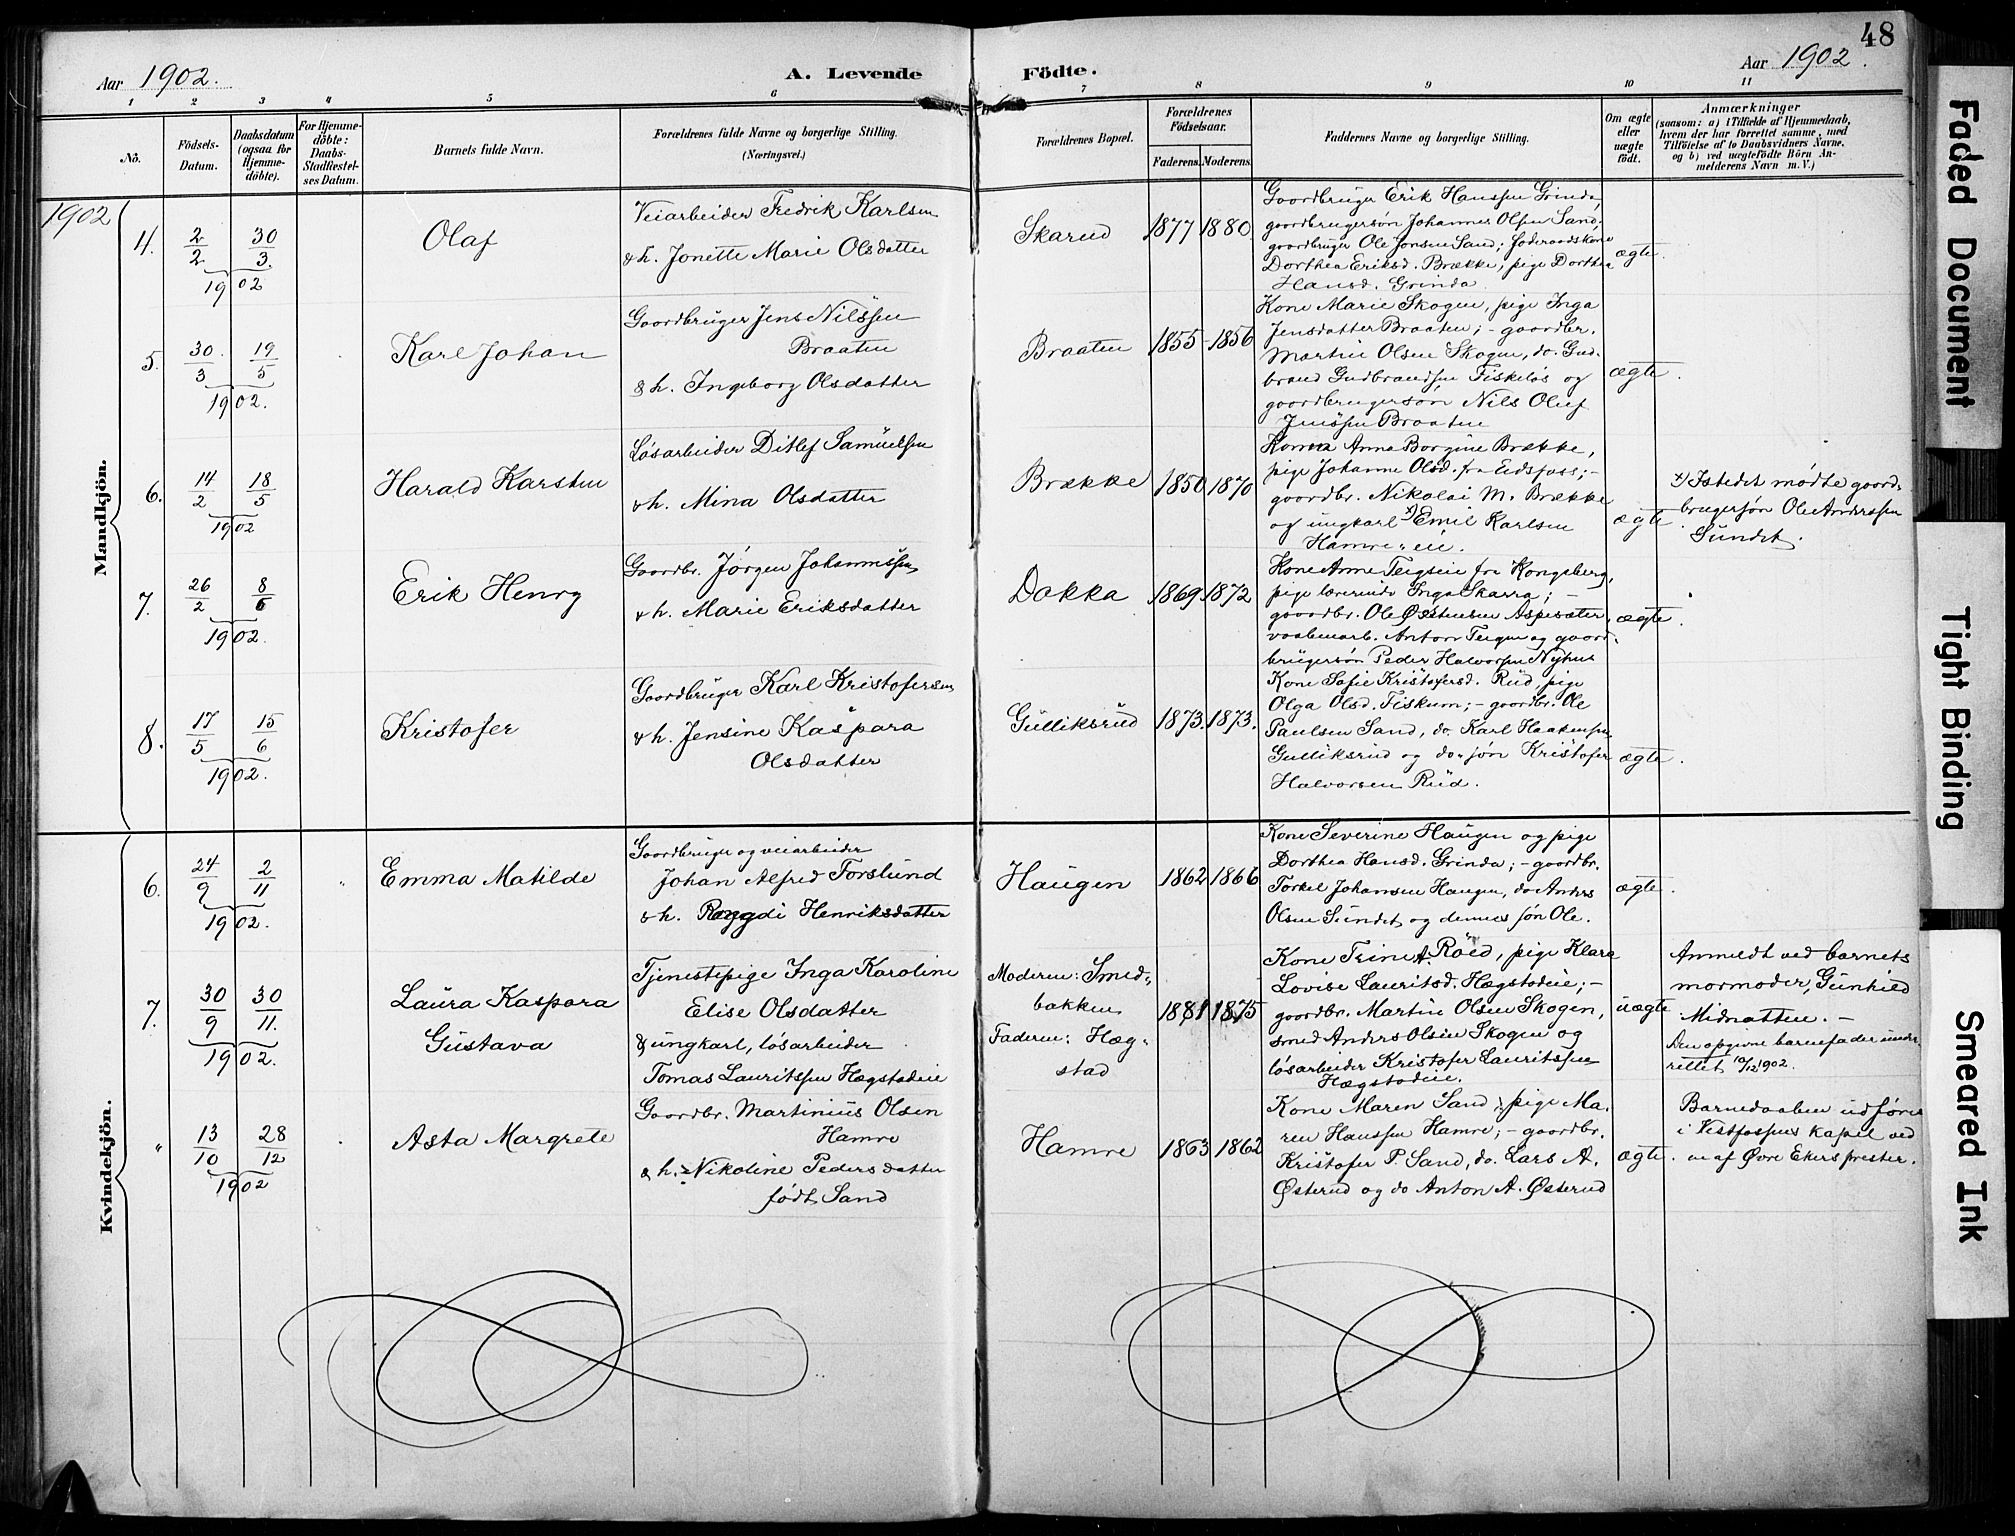 48
Aar 1902.
A. Levende Födte.
Aar 1902.
1 2 3 4 5 6 7 8 9 10 11
No.
Födsels-Datum.
Daabsdatum (ogsaa for Hjemme-döbte).
For Hjemme-döbte: Daabs-Stadfæstel-ses Datum.
Barnets fulde Navn.
Forældrenes fulde Navne og borgerlige Stilling.
(Næringsvei.)
Forældrenes Bopæl.
Forældrenes Födselsaar.
Faderens. Moderens.
Faddernes Navne og borgerlige Stilling.
Om ægte eller uægte födt.
Anmærkninger
(saasom: a) i Tilfælde af Hjemmedaab,
hvem der har forrettet samme, med
Tilföielse af to Daabsvidners Navne,
og b) ved uægtefödte Börn An-
melderens Navn m. V.)
1902
Mandkjön.
4. 2/2 30/3 1902
Olaf
Veiarbeider Fredrik Karlsen
& h. Jonette Marie Olsdatter
Skarud 1877 1880
Gaardbruger Erik Hanssen Grinda,
gaardbrugersøn Johannes Olsen Sand,
gaardbruger Ole Jonsen Sand; føderaadskone
Dorthea Eriksd. Brække, pige Dorthea
Hansd. Grinda.
ægte.
5. 30/3 19/5 1902.
Karl Johan
Gaardbruger Jens Nilssen
Braaten
& h. Ingeborg Olsdatter
Braaten 1855 - 1856
Kone Marie Skogen, pige Inga
Jensdatter Braaten; - gaardbr.
Martin Olsen Skogen, do. Gud-
brand Gudbrandsen Fiskeløs og
gaardbrugersøn Nils Oluf
Jenssen Braaten
ægte.
6. 14/2 18/5 1902
Harald Karsten
Løsarbeider Ditlef Samuelsen
& h. Mina Olsdatter
Brække 1850 1870
Kone Anna Borgine Brække,
pige Johanne Olsd. fra Eidsfoss; -
gaardbr. Nikolai M. Brække
og ungkarl x) Emil Karlsen
Hamre-eie.
ægte.
x) Istedet mødte gaard-
brugersøn Ole Anderssen
Sundet.
7. 26/2 8/6 1902.
Erik Henry
Gaardbr. Jørgen Johannessen
& h. Marie Eriksdatter
Dokka 1869 1872
Kone Anne Teigseie fra Kongsberg,
pige lærerinde Inga Skarra; -
gaardbr. Ole Østensen Aspesæter,
vaabenarb. Anton Teigen og gaard-
brugersøn Peder Halvorsen Nyhus
ægte.
8. 17/5 15/6 1902.
Kristofer
Gaardbruger Karl Kristofersen
& h. Jensine Kaspara
Olsdatter
Gulliksrud 1873. 1873.
Kone Sofie Kristofersd. Rud, pige
Olga Olsd. Fiskum; - gaardbr. Ole
Paulsen Sand, do. Karl Haakensen
Gulliksrud og do. søn Kristofer
Halvorsen Rud.
ægte.
Kvindekjön.
6. 24/9 2/11 1902.
Emma Matilde
Gaardbruger og veiarbeider
Johan Alfred Forslund
& h. Ragndi Henriksdatter
Haugen 1862 1866
Kone Severine Haugen og pige
Dorthea Hansd. Grinda; - gaardbr.
Torkel Johansen Haugen, do Anders
Olsen Sundet og dennes søn Ole.
ægte.
7. 30/9 30/11. 1902.
Laura Kaspara
Gustava
Tjenestepige Inga Karoline
Elise Olsdatter
& ungkarl, løsarbeider
Tomas Lauritssen Hægstadeie
Moderen: Smed-
bakken
Faderen: Hæg-
stad
1881 1875
Kone Trine A. Röed, pige Klara
Lovise Lauritsd. Hægstadeie; -
gaardbr. Martin Olsen Skogen,
smed Anders Olsen Skogen og
løsarbeider Kristofer Lauritssen
Hægstadeie.
uægte
Anmeldt ved barnets
mormoder, Gunhild
Midnatten. -
Den opgivne barnefader under-
rettet 10/12 1902.
" 13/10 28/12 1902
Asta Margrete
Gaardbr. Martinius Olsen
Hamre
& h. Nikoline Pedersdatter
født Sand
Hamre 1863 1862
Kone Maren Sand, pige Ma-
ren Hanssen Hamre; - gaardbr.
Kristofer P. Sand, do. Lars A.
Østerud og do Anton A. Østerud
ægte.
Barnedaaben udføres
i Vestfossens kapel ved
en af Øvre Ekers prester.
Faded Document
Tight Binding
Smeared Ink